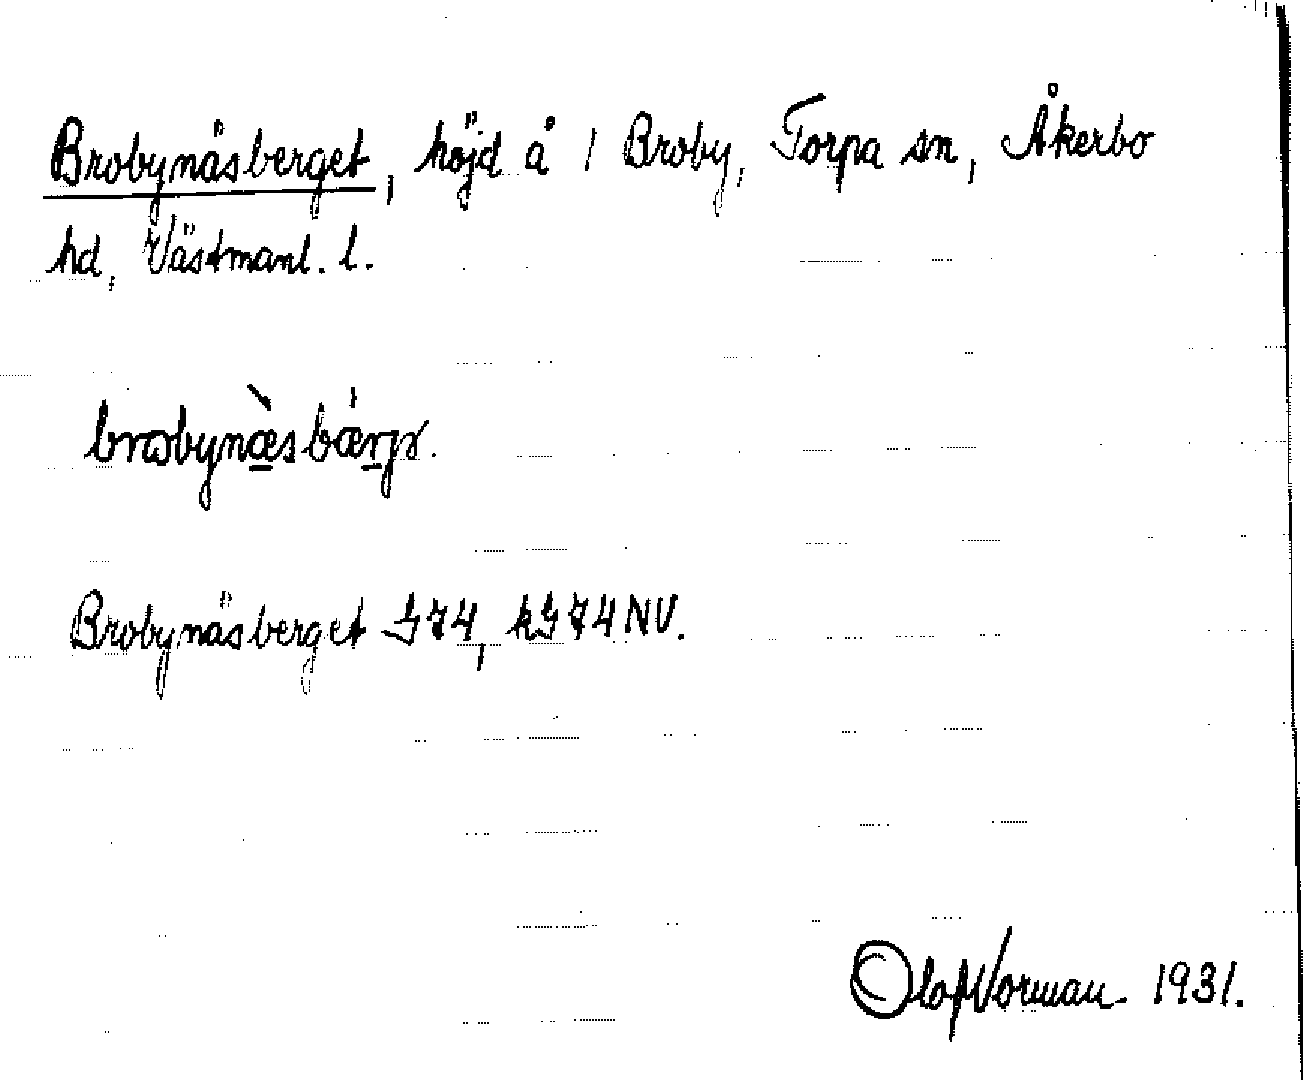 Brobynäsberget, höjd å 1 Broby, Torpa sn, Åkerbo
hd, Västmanl. l.
brobynæ̀sbærjər.
Brobynäsberget G74, kG74NV.
Olof Norman 1931.